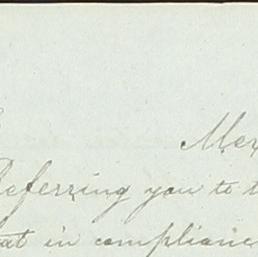 Mex
Referring you to t
at in complianc